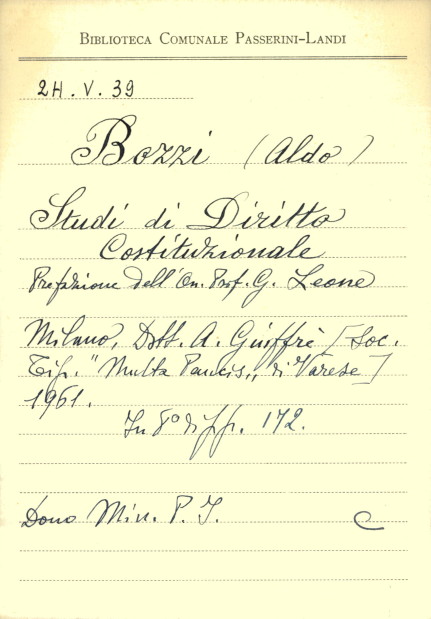 BIBLIOTECA COMUNALE PASSERINI-LANDI
2H. V. 39
Bozzi (Aldo)
Studi di Diritto
Costituzionale
Prefazione dell'On. Prof. G. Leone
Milano, Dott. A. Giuffrè [Soc.
Tip. "Multa Paucis„ di Varese]
1961.
In 8° di pp. 172.
Dono Min. P. I. C